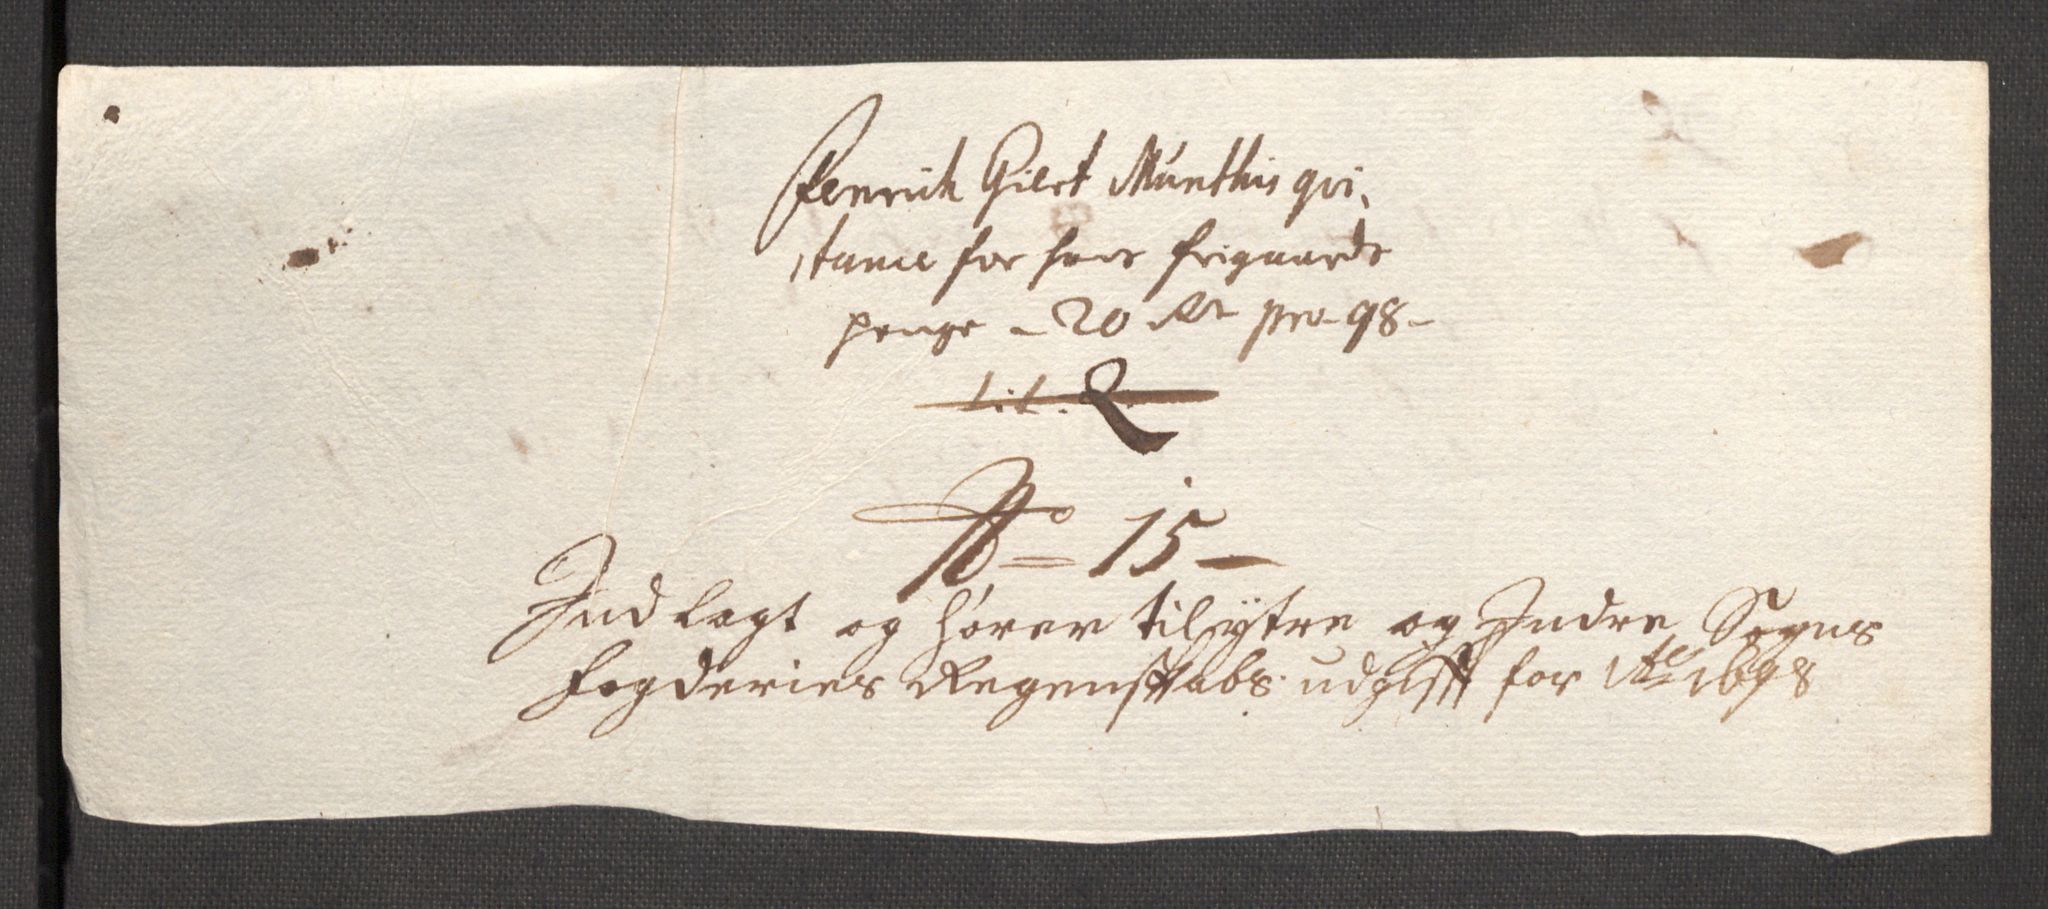 Henrich Giert Munthis qvi,
tance for hans frigaards
penge – 20 Rdr pro – 98 –
Lit. Q.
No = 15 –
Indlagt og hører til ytre og Indre Sogns
fogderies Regenskabs udgifft for Ao 1698